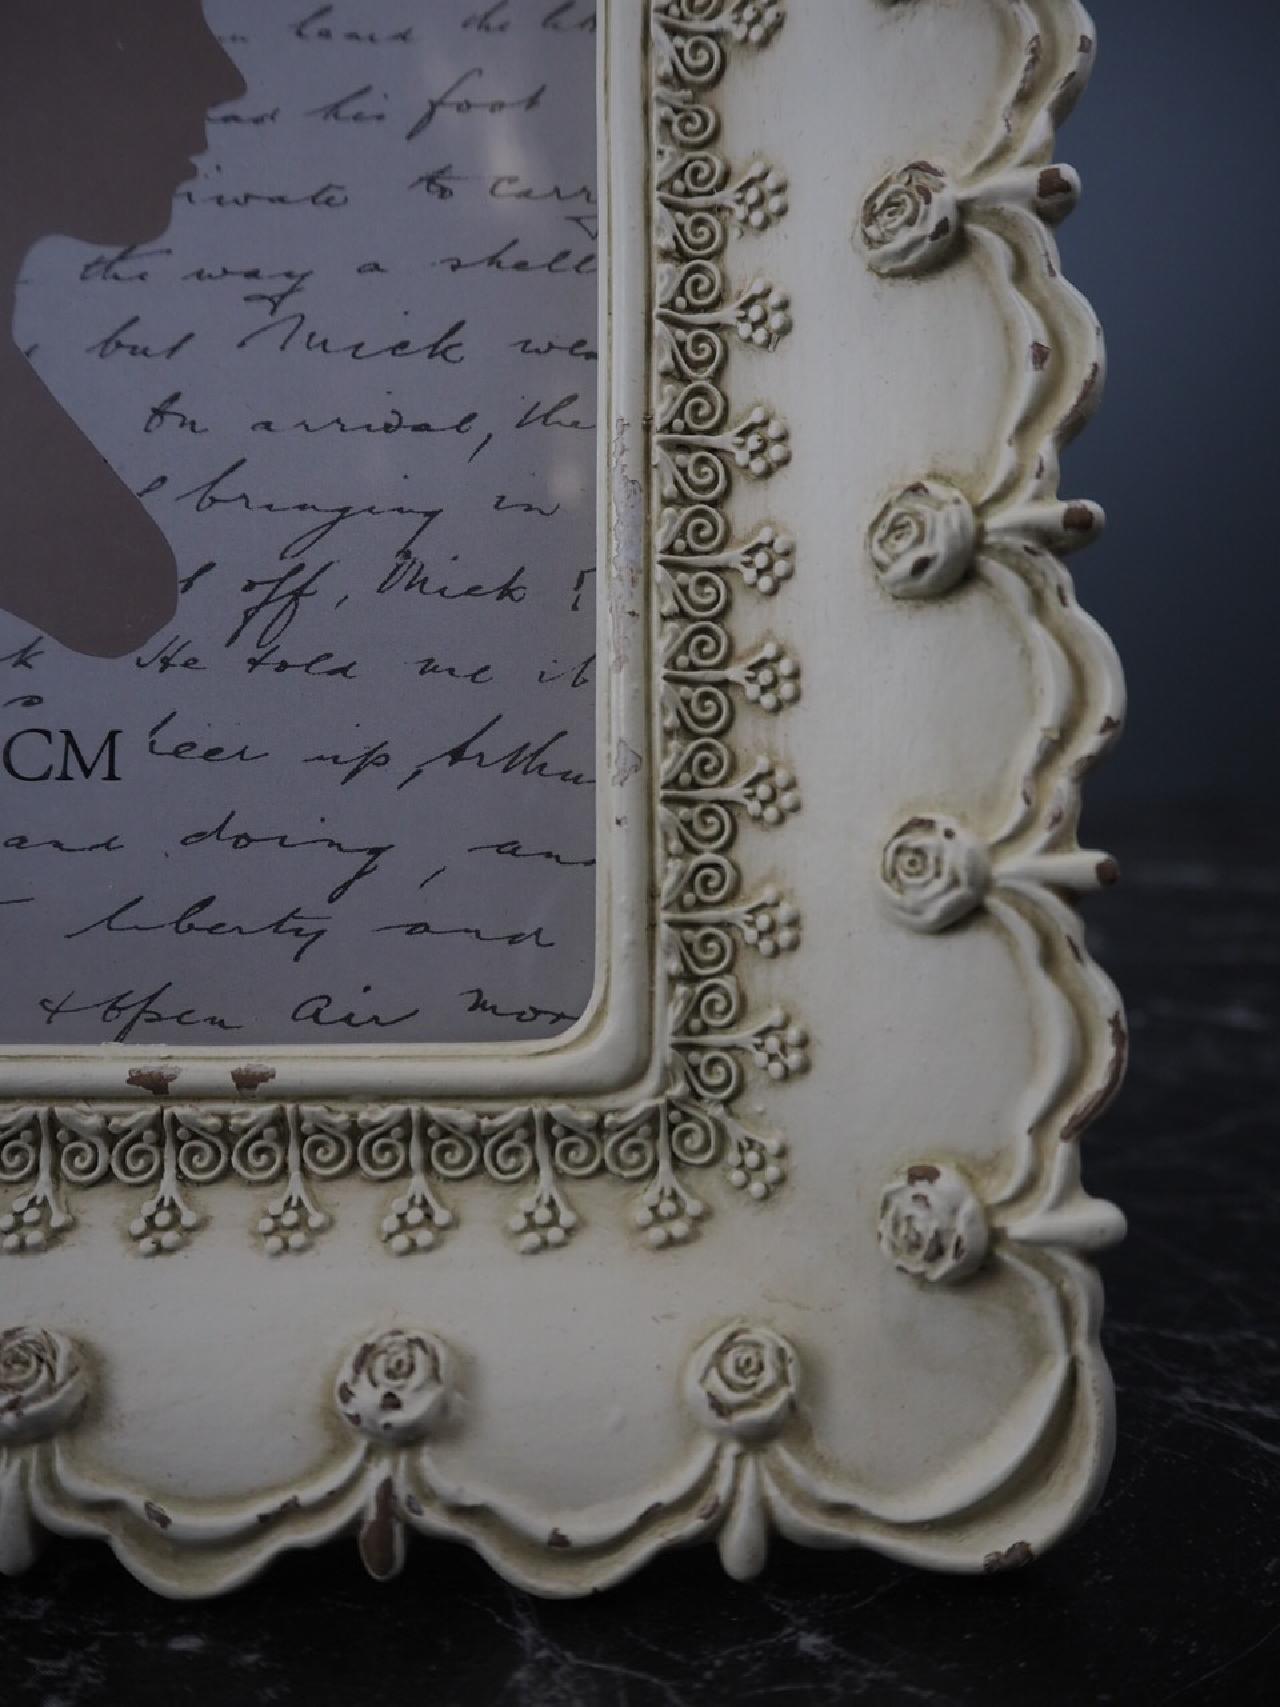 heard the
and his foot
to carry
the way a shell
but Mick
on arrival, the
bringing in
off, Mick
He told me it
CM
up, Arthu
and doing, and
liberty and
open air mor